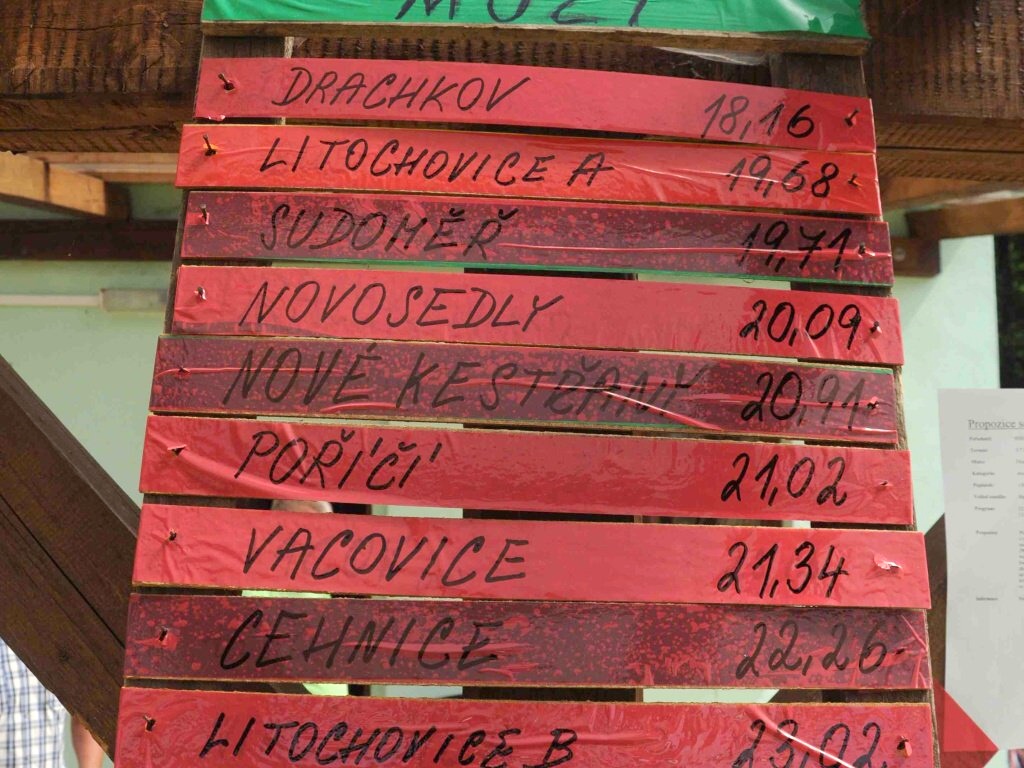 MUŽI
DRACHKOV 18,16
LITOCHOVICE A 19,68
SUDOMĚŘ 19,71
NOVOSEDLY 20,09
NOVÉ KESTŘANY 20,91
POŘÍČÍ 21,02
VACOVICE 21,34
CEHNICE 22,26
LITOCHOVICE B 23,02
Propozice